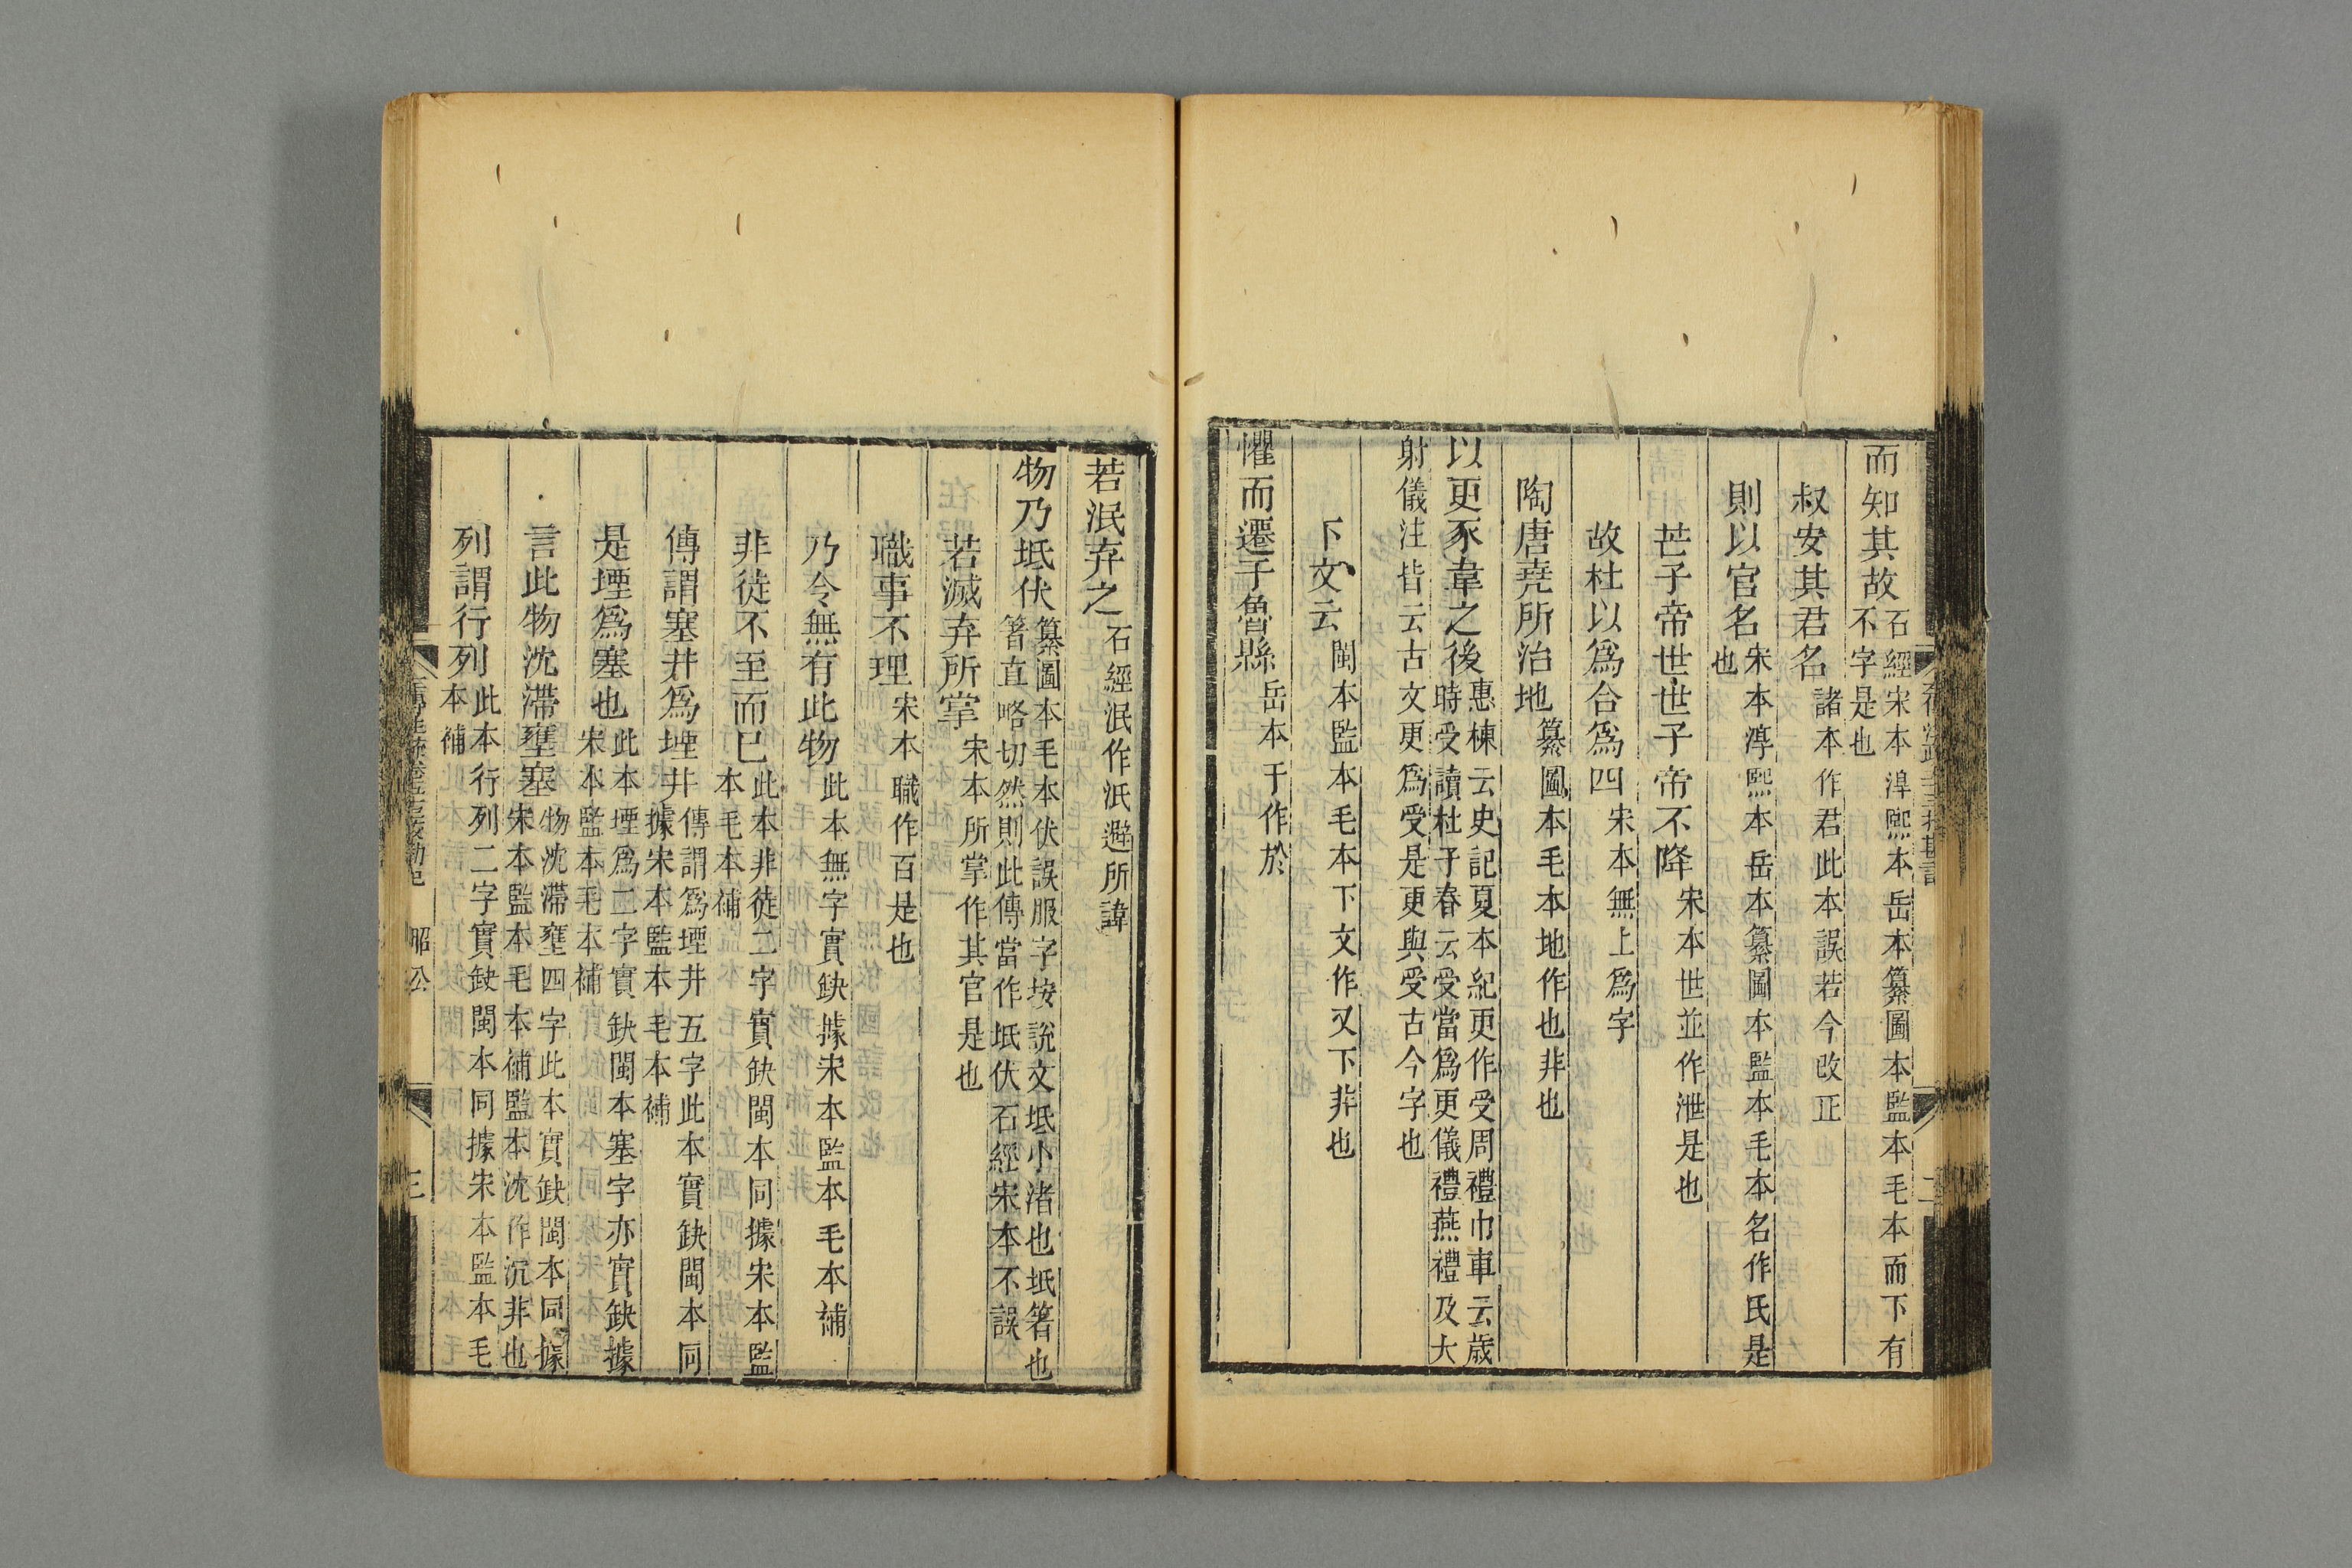 而知其故石經宋本淳熙本岳本纂圖本監本毛本而下有
不字是也
叔安其君名諸本作君此本誤若今改正
則以官名宋本淳熙本岳本纂圖本監本毛本名作氏是
也
芒子帝世世子帝不降宋本世並作泄是也
故杜以爲合爲四宋本無上爲字
陶唐堯所治地纂圖本毛本地作也非也
以更豕韋之後惠棟云史記夏本紀更作受周禮巾車云歲
時受讀杜子春云受當爲更儀禮燕禮及大
射儀注皆云古文更爲受是更與受古今字也
下文云閩本監本毛本下文作又下非也
懼而遷于魯縣岳本于作於
若泯弃之石經泯作汦避所諱
物乃坻伏纂圖本毛本伏誤服字按說文坻小渚也坻箸也
箸直略切然則此傳當作坻伏石經宋本不誤
若滅弃所掌宋本所掌作其官是也
職事不理宋本職作百是也
乃令無有此物此本無字實缺據宋本監本毛本補
非徒不至而已此本非徒二字實缺閩本同據宋本監
本毛本補
傳謂塞井爲堙井傳謂爲堙井五字此本實缺閩本同
據宋本監本毛本補
是堙爲塞也此本堙爲二字實缺閩本塞字亦實缺據
宋本監本毛本補
言此物沈滯壅塞物沈滯壅四字此本實缺閩本同據
宋本監本毛本補監本沈作沉非也
列謂行列此本行列二字實缺閩本同據宋本監本毛
本補
昭公
三